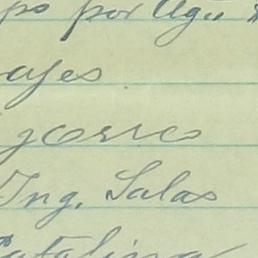 po por Ag.
ajes
gorro
Ing. Salas
Catalina